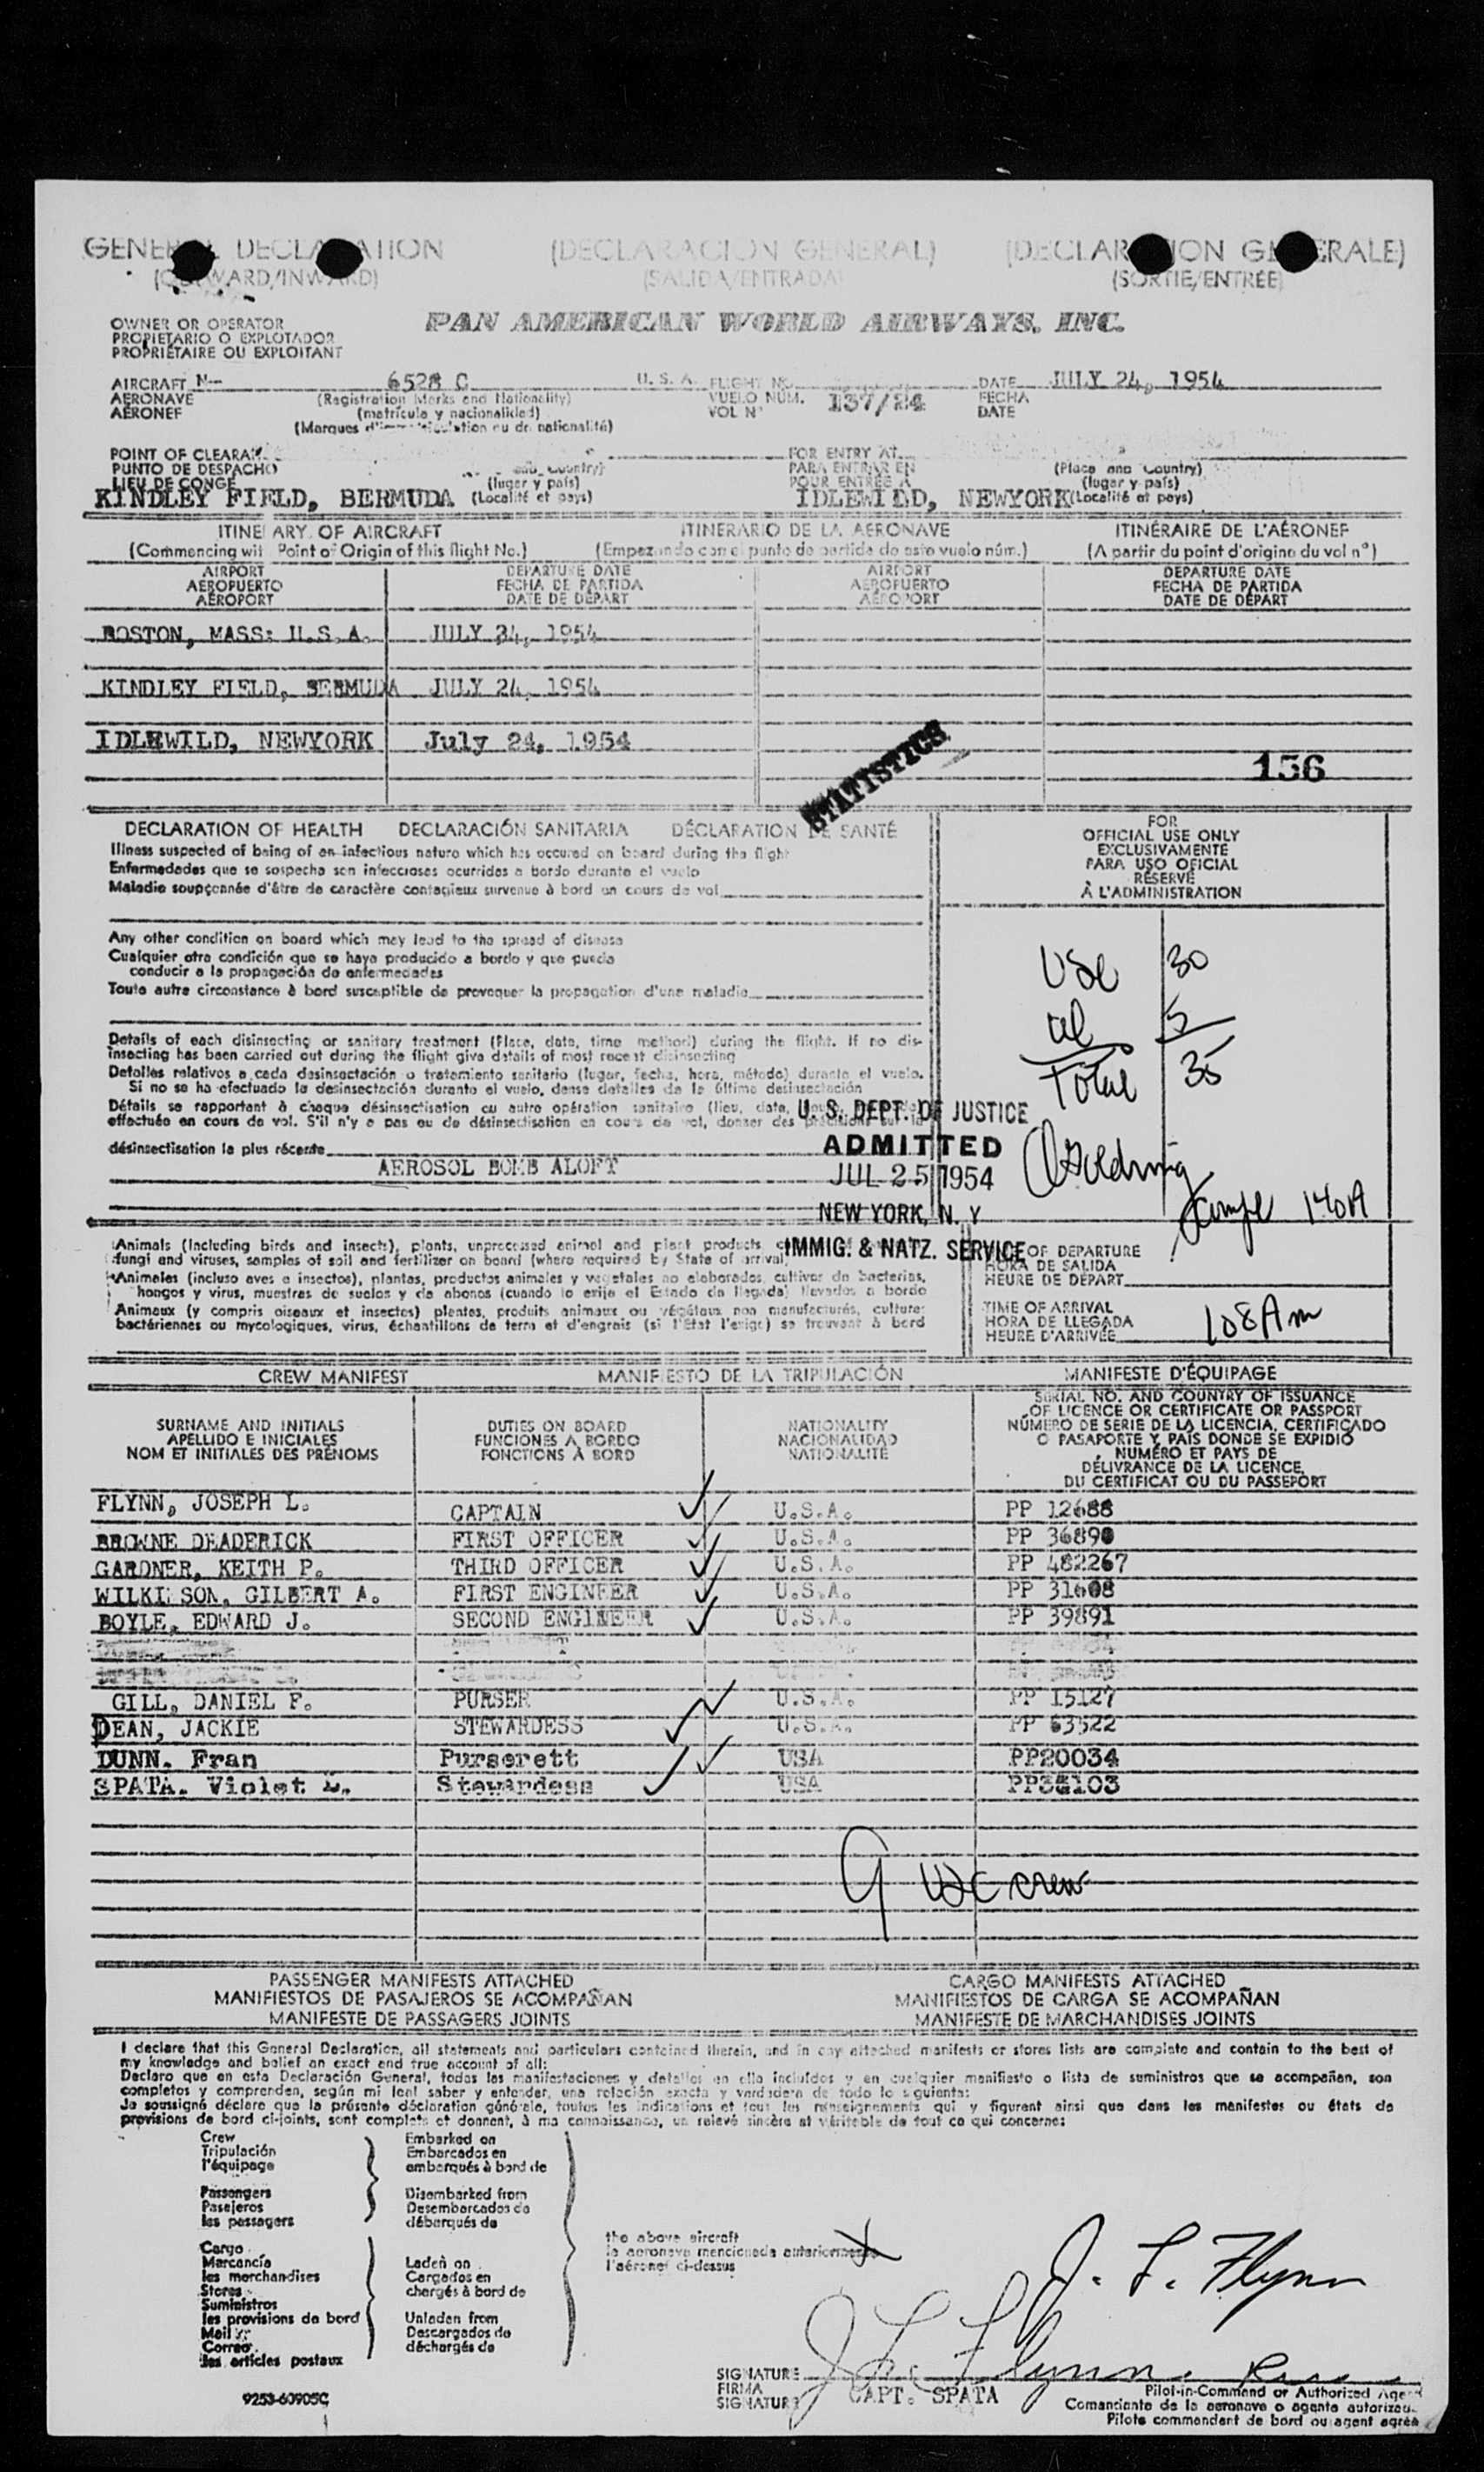 GENERAL DECLARATION (DECLARACION GENERAL) (DECLARATION GENERALE)
(OUTWARD/INWARD) (SALIDA/ENTRADA) (SORTIE/ENTRÉE)
OWNER OR OPERATOR
PROPIETARIO O EXPLOTADOR
PROPRIÉTAIRE OU EXPLOITANT
PAN AMERICAN WORLD AIRWAYS, INC.
AIRCRAFT N- 6528 C U. S. A. FLIGHT NO. DATE JULY 24, 1954
AERONAVE (Registration Marks and Nationality) VUELO NÚM. 137/24 FECHA
AÉRONEF (matrícula y nacionalidad) VOL N° DATE
(Marques d'immatriculation ou de nationalité)
POINT OF CLEARANCE FOR ENTRY AT
PUNTO DE DESPACHO and Country) PARA ENTRAR EN (Place and Country)
LIEU DE CONGÉ (lugar y país) POUR ENTRÉE A (lugar y país)
KINDLEY FIELD, BERMUDA (Localité et pays) IDLEWILD, NEWYORK (Localité et pays)
ITINERARY OF AIRCRAFT ITINERARIO DE LA AERONAVE ITINÉRAIRE DE L'AÉRONEF
(Commencing with Point of Origin of this flight No.) (Empezando con el punto de partida de este vuelo núm.) (A partir du point d'origine du vol n°)
AIRPORT DEPARTURE DATE AIRPORT DEPARTURE DATE
AEROPUERTO FECHA DE PARTIDA AEROPUERTO FECHA DE PARTIDA
AÉROPORT DATE DE DÉPART AÉROPORT DATE DE DÉPART
BOSTON, MASS: U.S.A. JULY 24, 1954
KINDLEY FIELD, BERMUDA JULY 24, 1954
IDLEWILD, NEWYORK July 24, 1954
STATISTICS
156
DECLARATION OF HEALTH DECLARACIÓN SANITARIA DÉCLARATION DE SANTÉ
Illness suspected of being of an infectious nature which has occured on board during the flight
Enfermedades que se sospecha son infecciosas ocurridas a bordo durante el vuelo
Maladie soupçonnée d'être de caractère contagieux survenue à bord en cours de vol
FOR
OFFICIAL USE ONLY
EXCLUSIVAMENTE
PARA USO OFICIAL
RÉSERVÉ
À L'ADMINISTRATION
Any other condition on board which may lead to the spread of disease
Cualquier otra condición que se haya producido a bordo y que pueda
conducir a la propagación de enfermedades
Toute autre circonstance à bord susceptible de provoquer la propagation d'une maladie
USC 30
al 5
Total 35
Details of each disinsecting or sanitary treatment (Place, date, time method) during the flight. If no dis-
insecting has been carried out during the flight give details of most recent disinsecting
Detalles relativos a cada desinsectación o tratamiento sanitario (lugar, fecha, hora, método) durante el vuelo.
Si no se ha efectuado la desinsectación durante el vuelo, dense detalles de la última desinsectación
Détails se rapportant à chaque désinsectisation ou autre opération sanitaire (lieu, date,
effectuée en cours de vol. S'il n'y a pas eu de désinsectisation en cours de vol, donner des précisions sur la
désinsectisation la plus récente
AEROSOL BOMB ALOFT
U. S. DEPT. OF JUSTICE
ADMITTED
JUL 25 1954
NEW YORK, N. Y
IMMIG. & NATZ. SERVICE
140A
Animals (Including birds and insects), plants, unprocessed animal and plant products,
fungi and viruses, samples of soil and fertilizer on board (where required by State of arrival)
Animales (incluso aves e insectos), plantas, productos animales y vegetales no elaborados, cultivos de bacterias,
hongos y virus, muestras de suelos y de abonos (cuando lo exija el Estado de llegada) llevados a bordo
Animaux (y compris oiseaux et insectes) plantes, produits animaux ou végétaux non manufacturés, cultures
bactériennes ou mycologiques, virus, échantillons de terre et d'engrais (si l'État l'exige) se trouvant à bord
OF DEPARTURE
HORA DE SALIDA
HEURE DE DÉPART
TIME OF ARRIVAL
HORA DE LLEGADA
HEURE D'ARRIVÉE
108 Am
CREW MANIFEST MANIFIESTO DE LA TRIPULACIÓN MANIFESTE D'ÉQUIPAGE
SURNAME AND INITIALS
APELLIDO E INICIALES
NOM ET INITIALES DES PRÉNOMS
DUTIES ON BOARD
FUNCIONES A BORDO
FONCTIONS À BORD
NATIONALITY
NACIONALIDAD
NATIONALITÉ
SERIAL NO. AND COUNTRY OF ISSUANCE
OF LICENCE OR CERTIFICATE OR PASSPORT
NÚMERO DE SERIE DE LA LICENCIA, CERTIFICADO
O PASAPORTE Y PAÍS DONDE SE EXPIDIÓ
NUMÉRO ET PAYS DE
DÉLIVRANCE DE LA LICENCE,
DU CERTIFICAT OU DU PASSEPORT
FLYNN, JOSEPH L. CAPTAIN U.S.A. PP 12688
BROWNE DEADERICK FIRST OFFICER U.S.A. PP 36890
GARDNER, KEITH P. THIRD OFFICER U.S.A. PP 482267
WILKINSON, GILBERT A. FIRST ENGINEER U.S.A. PP 31608
BOYLE, EDWARD J. SECOND ENGINEER U.S.A. PP 39891
GILL, DANIEL F. PURSER U.S.A. PP 15127
DEAN, JACKIE STEWARDESS U.S.A. PP 63522
DUNN. Fran Purserett USA PP20034
SPATA. Violet L. Stewardess USA
9 USC crew
PASSENGER MANIFESTS ATTACHED CARGO MANIFESTS ATTACHED
MANIFIESTOS DE PASAJEROS SE ACOMPAÑAN MANIFIESTOS DE CARGA SE ACOMPAÑAN
MANIFESTE DE PASSAGERS JOINTS MANIFESTE DE MARCHANDISES JOINTS
I declare that this General Declaration, all statements and particulars contained therein, and in any attached manifests or stores lists are complete and contain to the best of
my knowledge and belief an exact and true account of all:
Declaro que en esta Declaración General, todas las manifestaciones y detalles en ella incluídos y en cualquier manifiesto o lista de suministros que se acompañen, son
completos y comprenden, según mi leal saber y entender, una relación exacta y verdadera de todo lo siguiente:
Je soussigné déclare que la présente déclaration générale, toutes les indications et tous les renseignements qui y figurent ainsi que dans les manifestes ou états de
provisions de bord ci-joints, sont complets et donnent, à ma connaissance, un relevé sincère et véritable de tout ce qui concerne:
Crew Embarked on
Tripulación Embarcados en
l'équipage embarqués à bord de
Passengers Disembarked from
Pasajeros Desembarcados de
les passagers débarqués de
the above aircraft
la aeronave mencionada anteriormente
l'aéronef ci-dessus
Cargo
Marcancía Laden on
les marchandises Cargados en
Stores chargés à bord de
Suministros
les provisions de bord Unladen from
Mail Descargados de
Correo déchargés de
les articles postaux
J. L. Flynn
J. L. Flynn
SIGNATURE
FIRMA
SIGNATURE CAPT. SPATA
Pilot-in-Command or Authorized Agent
Comandante de la aeronave o agente autorizado
Pilote commandant de bord ou agent agréé
9253-60905C